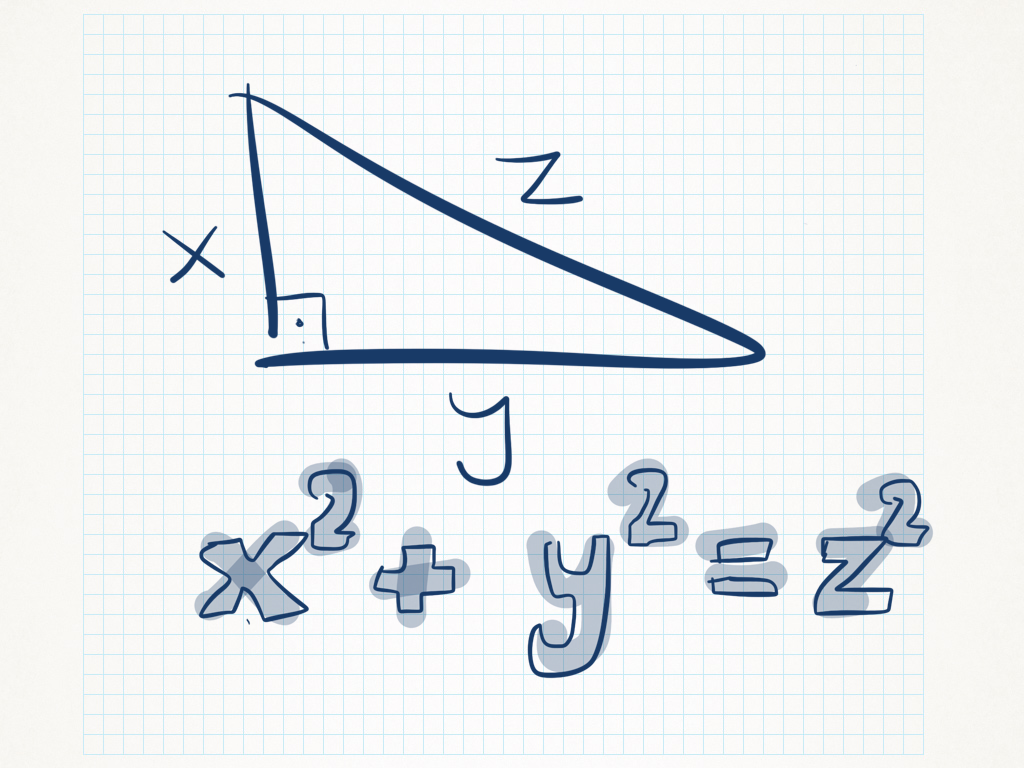 z
x
y
x² + y² = z²